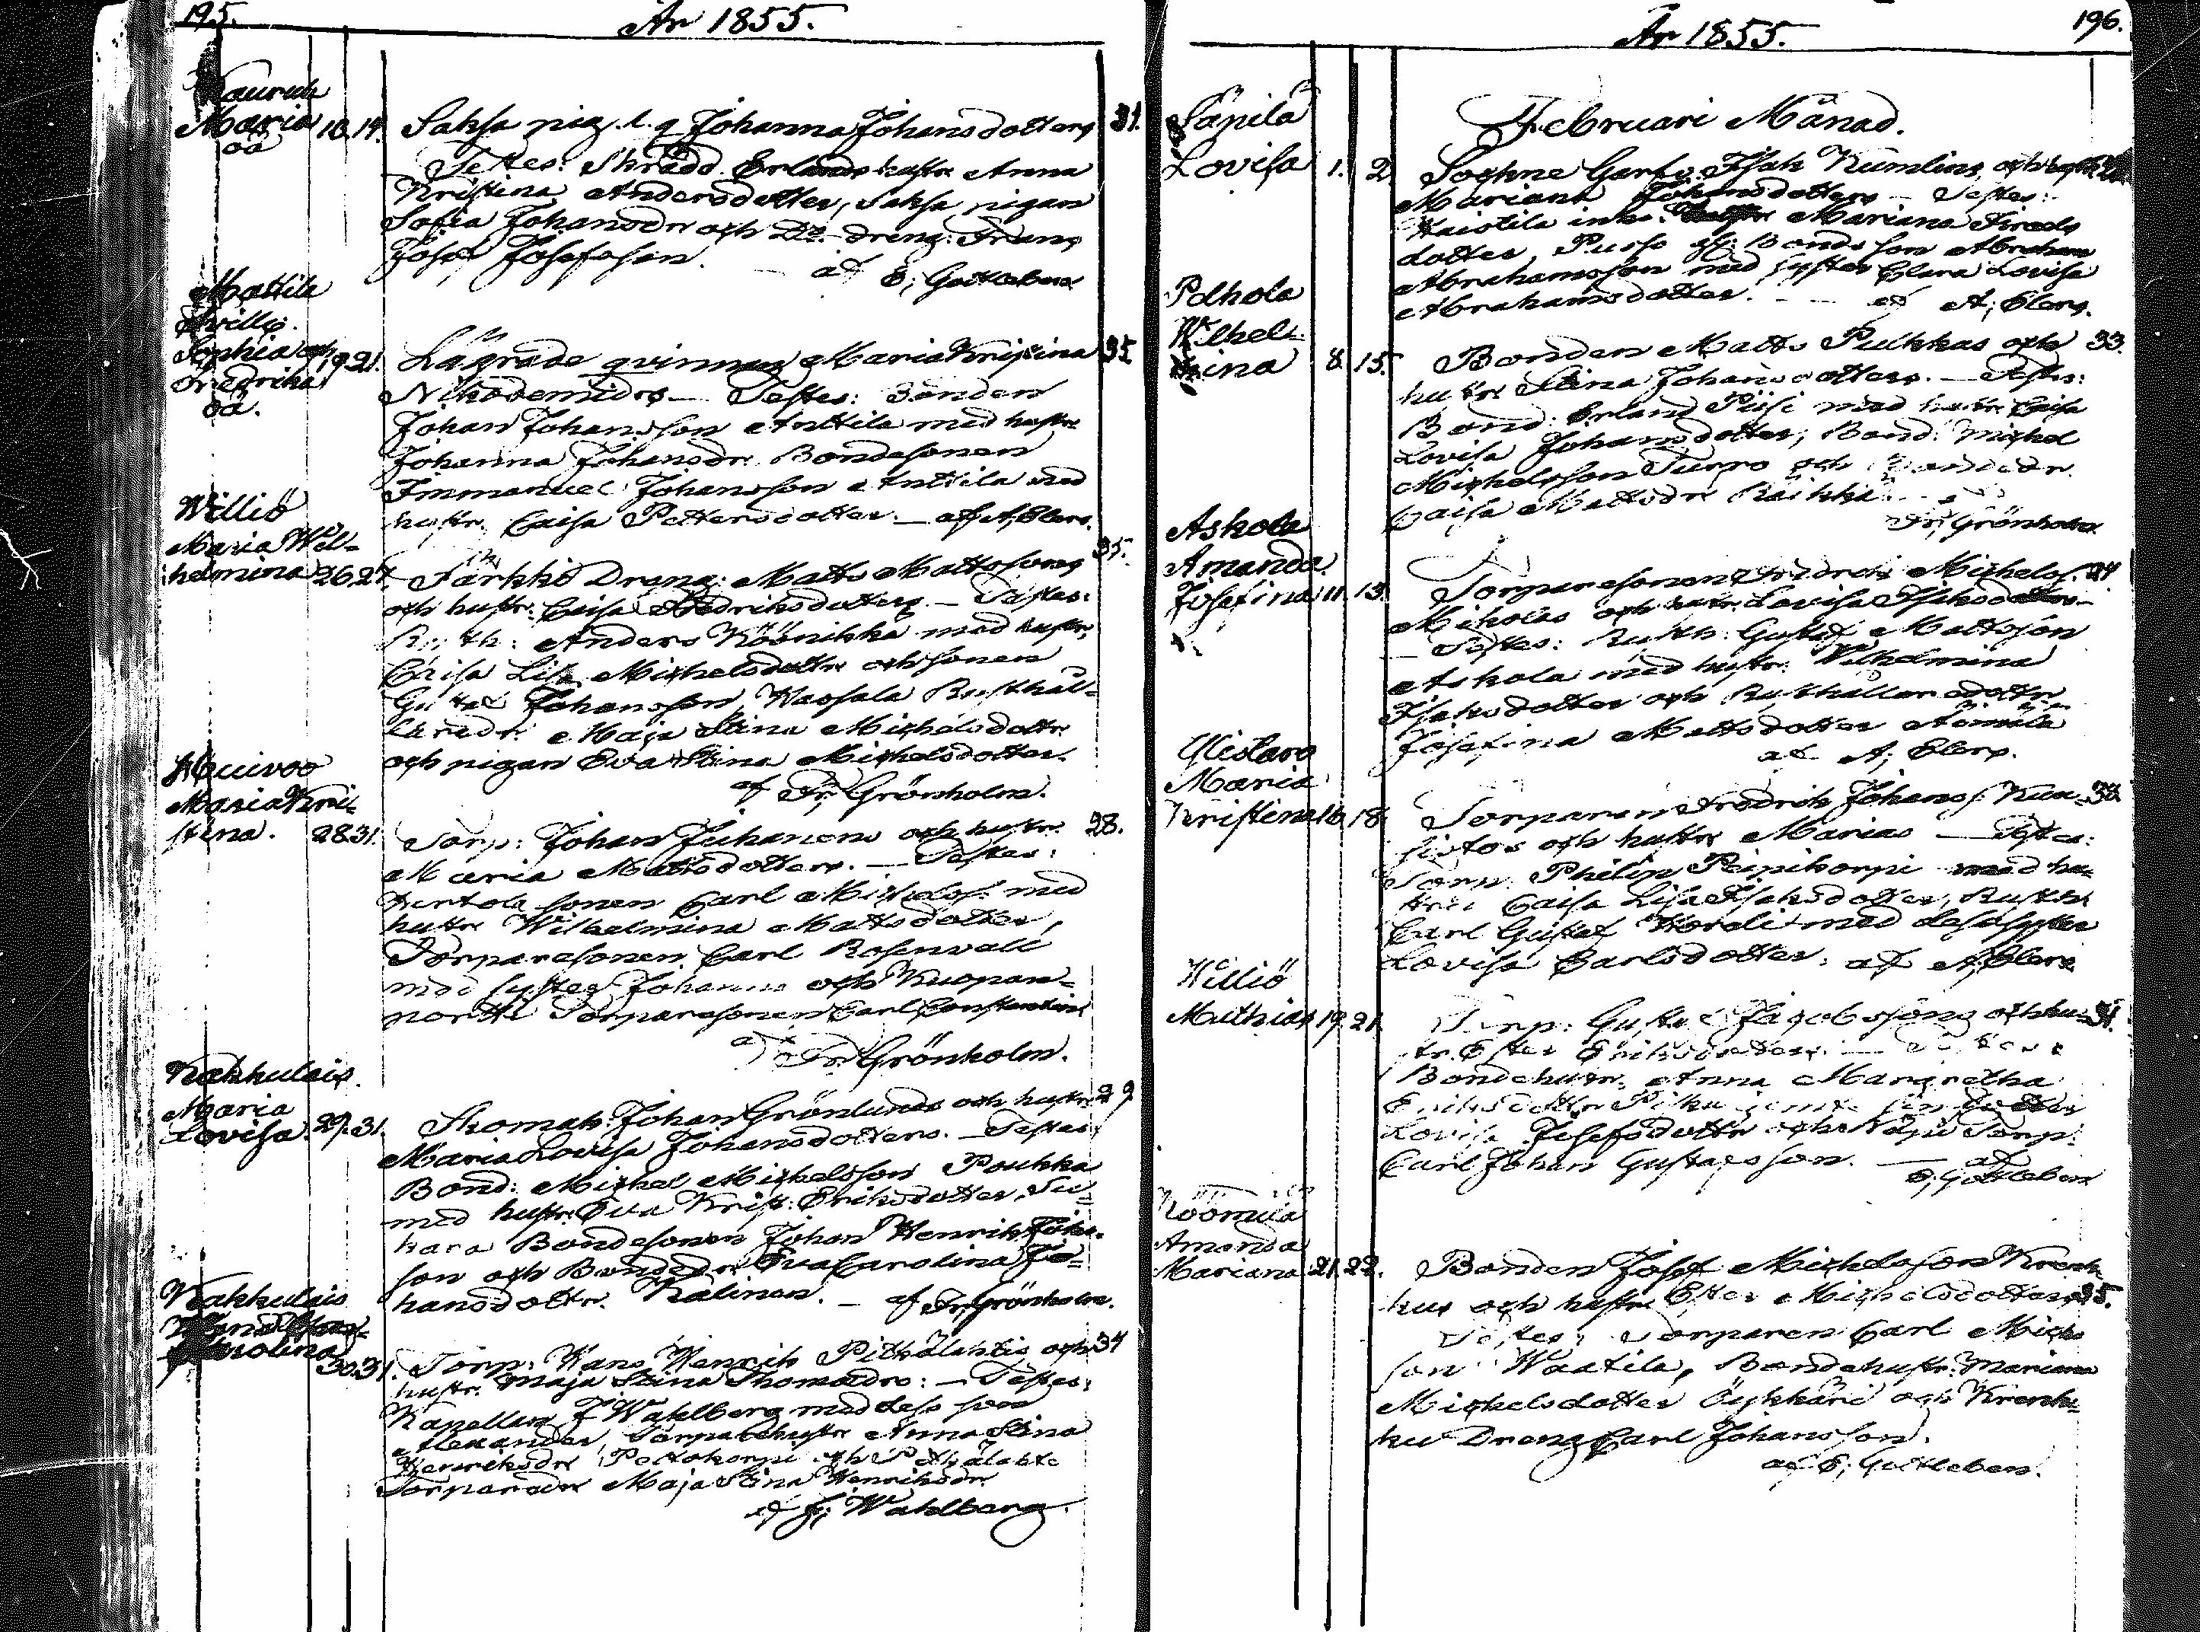 195.
År 1855.
Maria 10. 14. Saksa pig. Johanna Johansdotters 31.
oä Testes: Skrädd. Erlands hustr. Anna
Kristina Andersdotter, Saksa pigan
Sofia Johansdr och Do dreng: Frans
Josef Josefsson. af E; Gottleben
Mattila
Sophia och 19. 21. Lägrade qvinnans Maria Kristina 35
Fredrika Nikodemidrs — Testes: Bonden
oä. Johan Johansson Anttila med hustr
Johanna Johansdr Bondesonen
Immanuel Johansson Anttila med
hustr. Caisa Pettersdotter. — af A; Elers.
Williö
Maria Wil-
helmina 26. 27. Järkkö Dreng: Matts Mattssons 35.
och hustr: Caisa Fredriksdotters. — Testes:
Rusth: Anders Köönikkä med hustr.
Caisa Lisa Michelsdottr och sonen
Gustaf Johansson, Wassala Rusthål-
laredr. Maja Stina Michelsdottr
och pigan Eva Stina Michelsdotter.
af Fr; Grönholm.
Maria Kri-
stina. 28. 31. Torp: Johan Juhanens och hustr. 28.
Maria Mattsdotters. — Testes:
Hertola sonen Carl Michelss. med
hustr Wilhelmina Mattsdotter,
Torparesonen Carl Rosenvall
med syster Johanna och Kuopan-
portti Torparesonen Carl Constantin
af Fr; Grönholm.
Kakkulais.
Maria
Lovisa. 29. 31. Johan Grönlunds och hustr 29
Maria Lovisa Johansdotters. — Testes:
Bond: Michel Michelsson Poukka
med hustr. Eva Krist. Eriksdotter, Su-
kara Bondesonen Johan Henrik Johs-
son och Bondedr Eva Carolina Jo-
hansdottr. Kälinen. — af Fr; Grönholm.
Kakkulais
Carolina 30. 31. Torp: Hans Henrik Pitkälahtis och 34
hustr. Maja Stina Thomædrs: — Testes:
Kapellan F Wahlberg med dess son
Alexander, Torparehustr Anna Stina
Henriksdr och Pitkälahti
Torparedr Maja Stina Henriksdr
af F; Wahlberg.
196.
År 1855.
Februari Månad.
Säpilä
Lovisa 1. 2. Sockne Garfv. Isak Kumlins och
Mariana Johansdotters — Testes:
Haistila inhs. Mariana Fredr
dotter Bonde son Abraham
Abrahamsson med syster Clara Lovisa
Abrahamsdotter. — af A; Elers.
Pelhola
Wilhel-
mina 8. 15. Bonden Matts Pukkas och 33.
hustr Stina Johansdotters. — Testes:
Bond: Erland Piisi med hustr Caisa
Lovisa Johansdotter, Bond: Michel
Michelsson Turpo och Bondedr.
Caisa Mattsdr Räikkä
Fr; Grönholm
Askola
Amanda
Josefina 11. 13. Torparesonen Fredrik Michelss. 24
och hustr. Lovisa Isaksdotters.
— Testes: Rusth: Gustaf Mattsson
Askola med hustr. Wilhelmina
Isaksdotter och Rusthållaredottr
Josefina Mattsdotter
af A; Elers.
Maria
Kristina 16. 18. Torparen Fredrik Johanss. Kua-
sistos och hustr Marias — Testes:
Torp. Philip Pipikorpi med hu-
stru Caisa Lisa Isaksdotter, Rusth:
Carl Gustaf Hordi med dess syster
Lovisa Carlsdotter. af A; Elers.
Williö
Mathias 19. 21. Torp: Gustaf Jacobssons och hu- 31.
str. Ester Eriksdotters. — Testes:
Bondehustr. Anna Margretha
Eriksdottr jemte sin dotter
Lovisa Josefsdottr och Torp:
Carl Johan Gustafsson. — af
E; Gottleben
Köömilä
Amanda
Mariana 21. 22. Bonden Josef Michelsson Krenk-
kus och hustr Ester Michelsdotters 35.
Testes: Torparen Carl Michs
son Waatila, Bondehustr. Mariana
Michelsdotter och Krenk-
ku Dreng Carl Johansson.
af E; Gottleben.